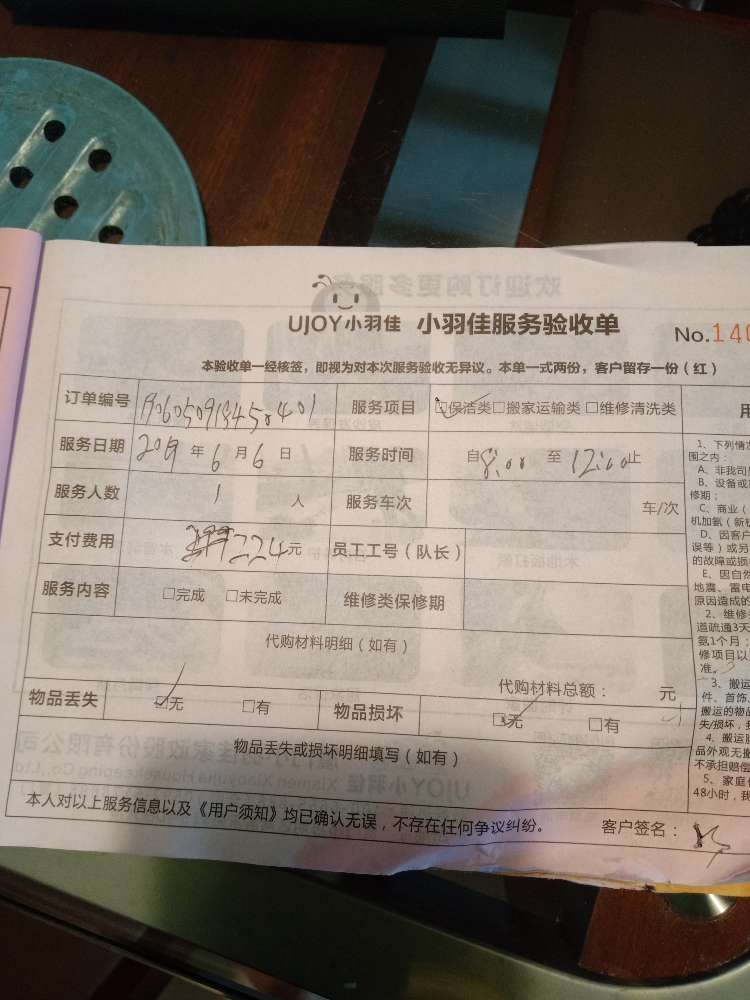 UJOY小羽佳 小羽佳服务验收单
No.140
本验收单一经核签，即视为对本次服务验收无异议。本单一式两份，客户留存一份（红）
订单编号 服务项目 ☑保洁类□搬家运输类□维修清洗类
服务日期 2019年6月6日 服务时间 自8:00至12:00止
服务人数 1人 服务车次 车/次
支付费用 224元 员工工号（队长）
服务内容 □完成 □未完成 维修类保修期
代购材料明细（如有）
代购材料总额： 元
物品丢失 ☑无 □有 物品损坏 ☑无 □有
物品丢失或损坏明细填写（如有）
本人对以上服务信息以及《用户须知》均已确认无误，不存在任何争议纠纷。 客户签名：
用
1、下列情
围之内：
A、非我司
B、设备或
修期；
C、商业（
机加氨（新
D、因客户
误等）或另
的故障或损
E、因自然
地震、雷电
原因造成的
2、维修
道疏通3天
氨1个月；
修项目以
准。
3、搬运
件、首饰、
搬运的物品
失/损坏，
4、搬运
品外观无搬
不承担赔偿
5、家庭
48小时，我